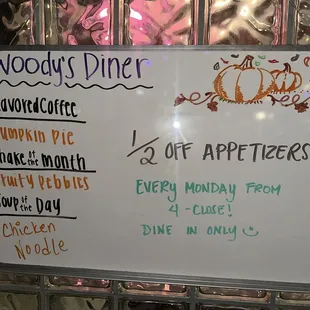 Woody's Diner
Flavored Coffee
Pumpkin Pie
Shake of the month
Fruity Pebbles
Soup of the Day
Chicken
Noodle
1/2 OFF APPETIZERS
EVERY MONDAY FROM
4 - CLOSE!
DINE IN ONLY